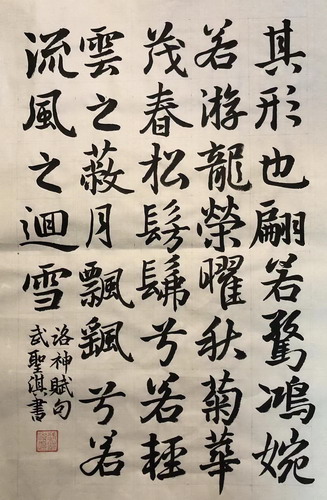 其形也翩若驚鴻婉
若游龍榮曜秋菊華
茂春松髣髴兮若輕
雲之蔽月飄颻兮若
流風之迴雪
洛神賦句
武聖淇書